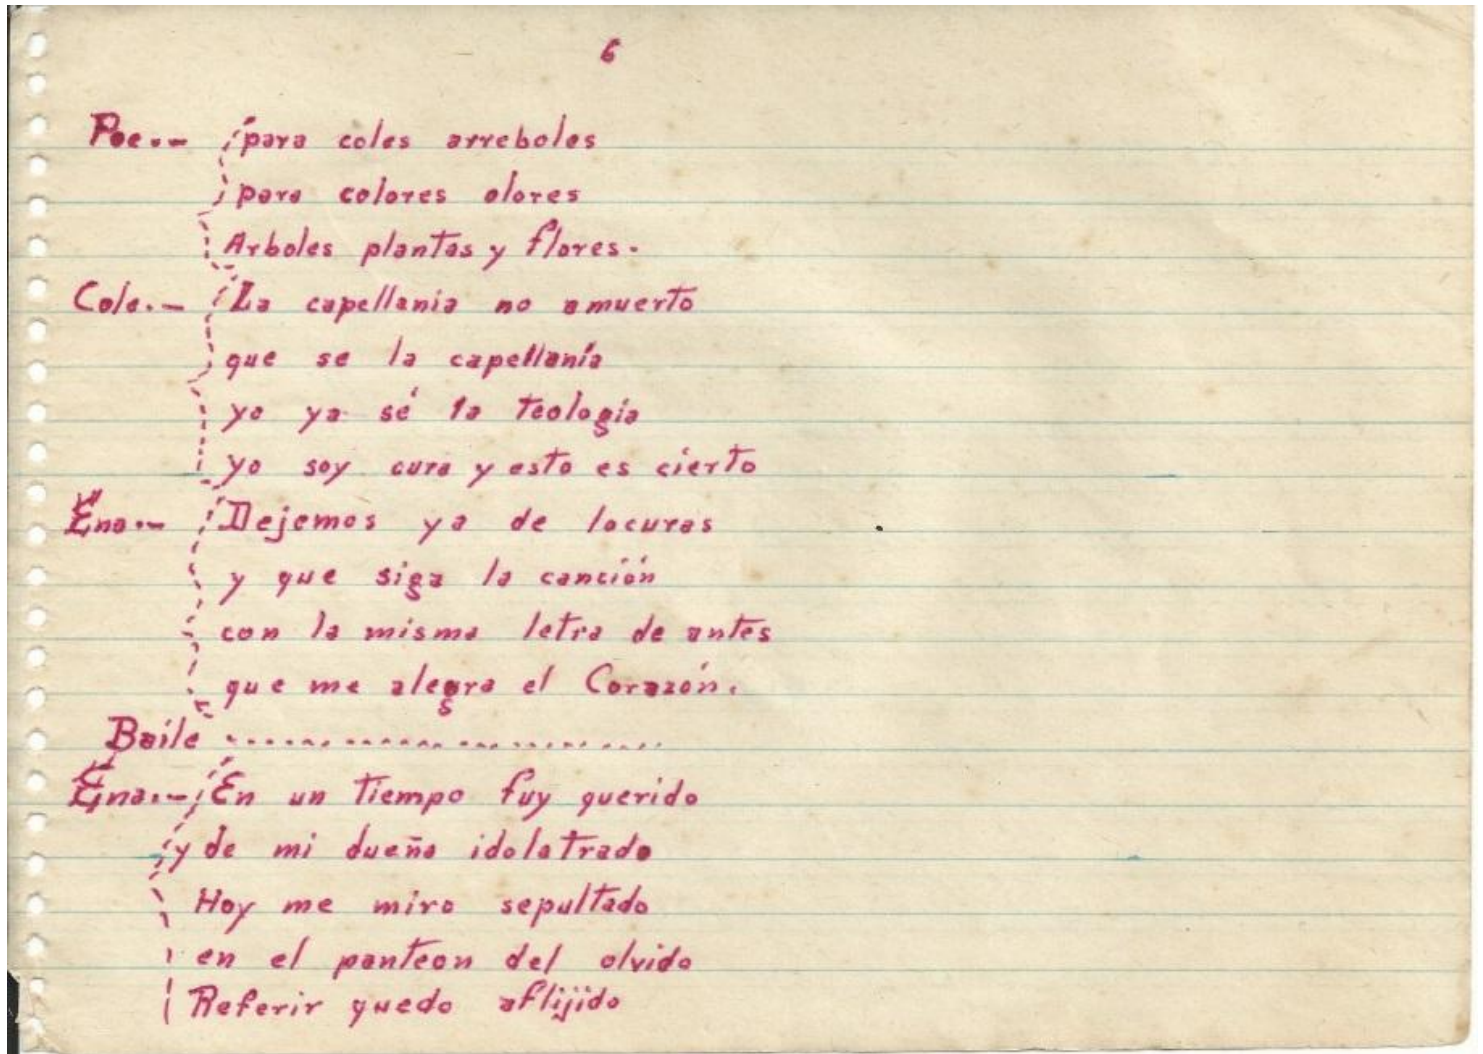 6
Poe.- para coles arreboles
para colores olores
Arboles plantas y flores.
Cole.- La capellania no amuerto
que se la capellanía
yo ya sé la Teología
yo soy cura y esto es cierto
Ena.- Dejemos ya de locuras
y que siga la canción
con la misma letra de antes
que me alegra el Corazón.
Baile ..............................
Ena.- En un Tiempo fuy querido
y de mi dueño idolatrado
Hoy me miro sepultado
en el panteon del olvido
Referir quedo aflijido